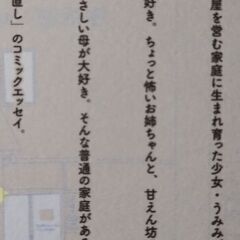 屋を営む家庭に生まれ育った少女・うみみ
好き。ちょっと怖いお姉ちゃんと、甘えん坊
さしい母が大好き。そんな普通の家庭がある
直し」のコミックエッセイ。